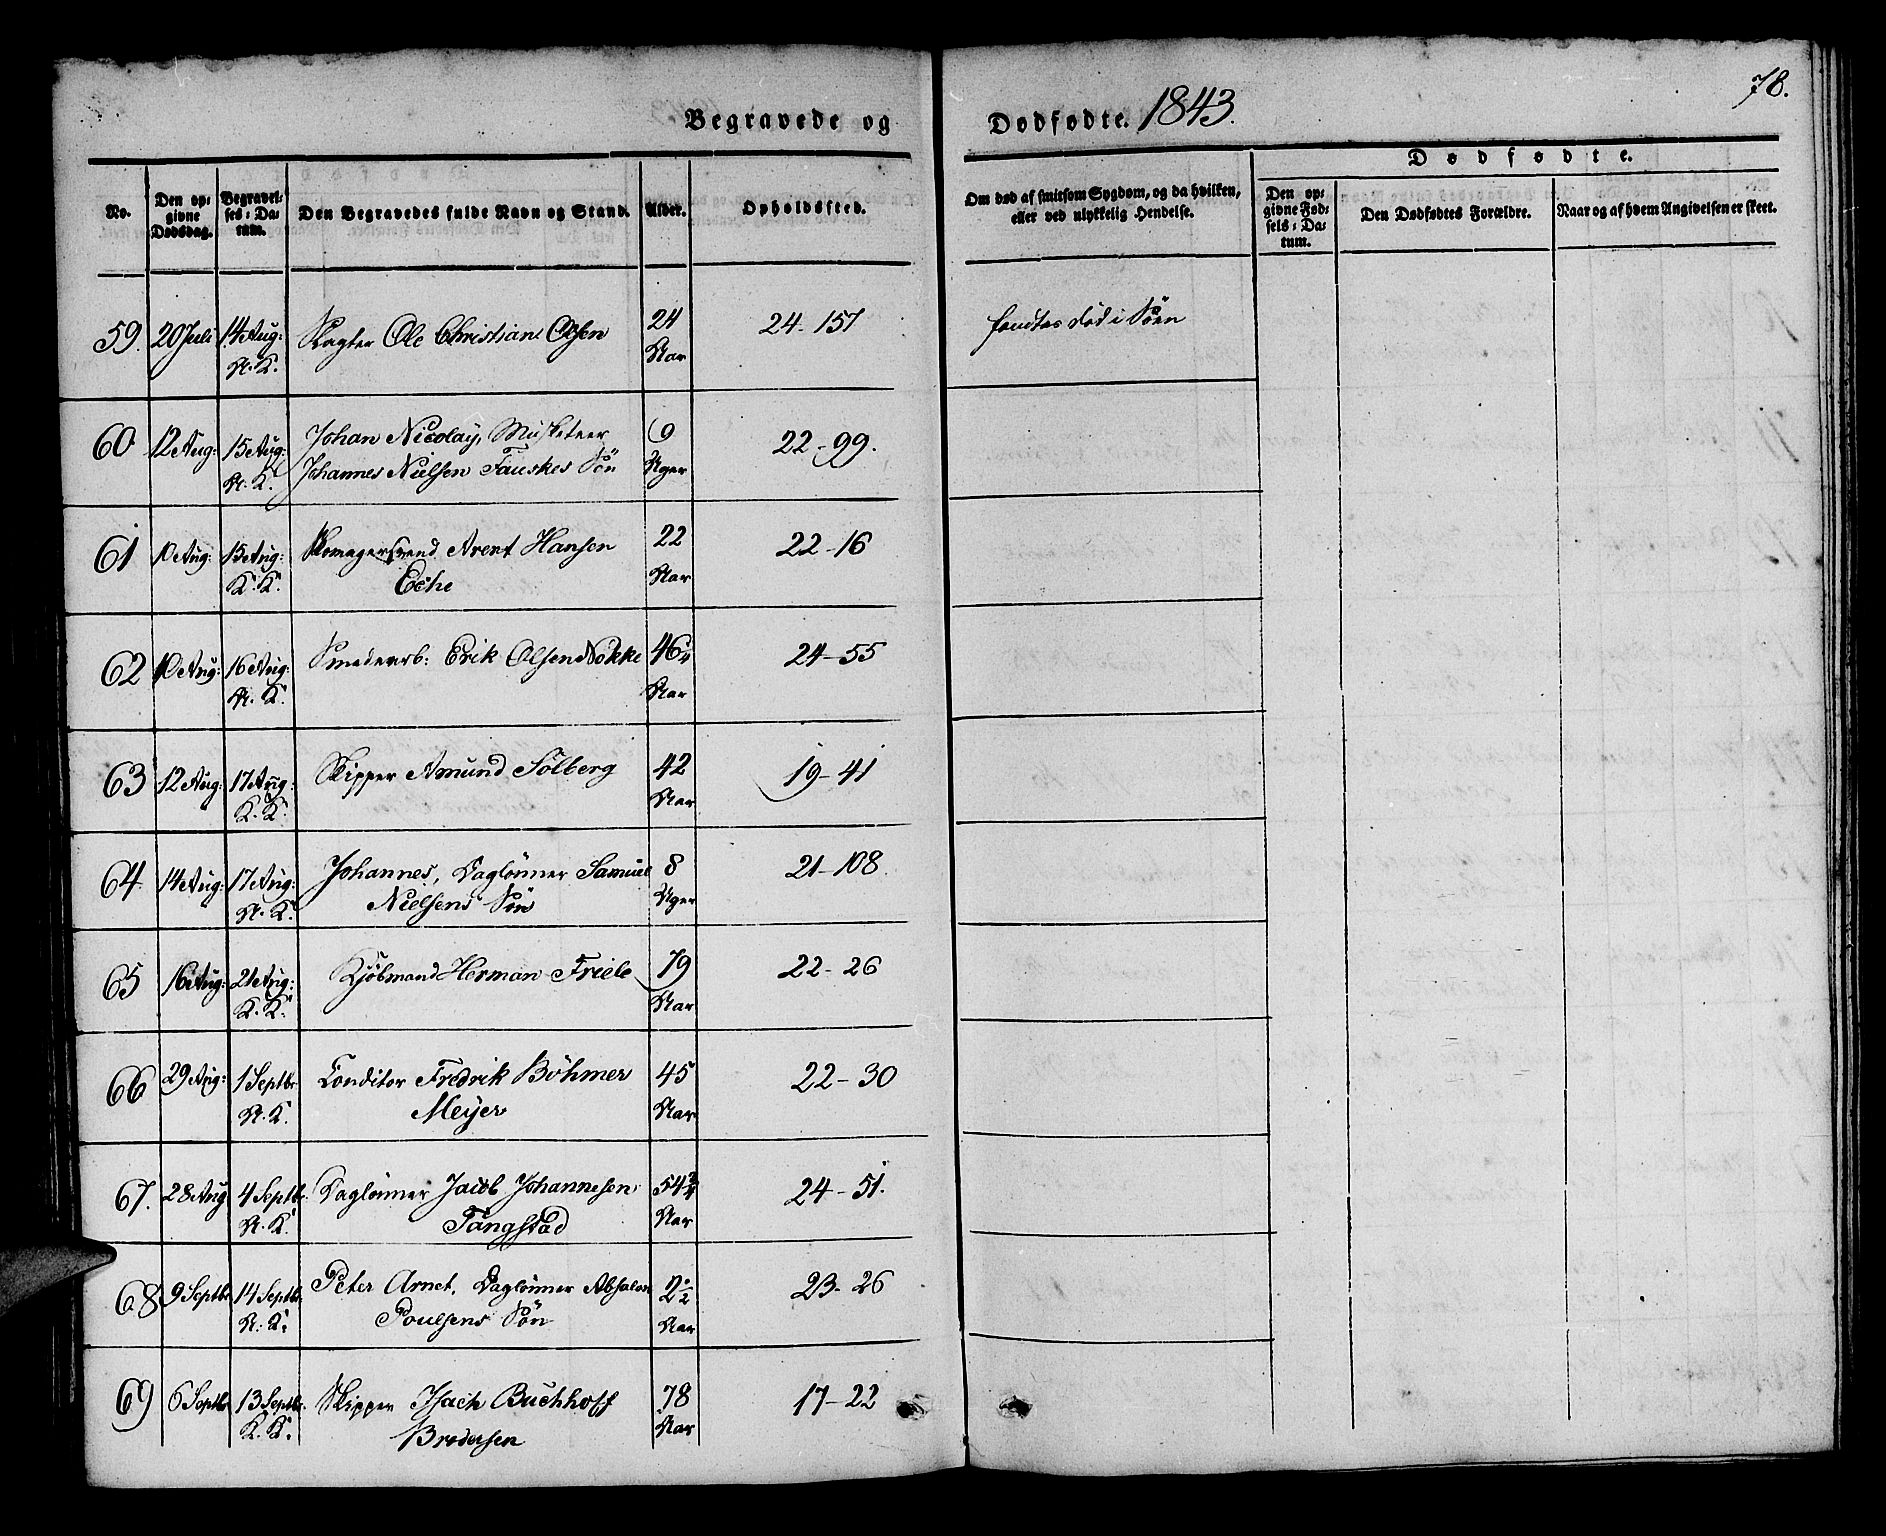 78.
Begravede og Dødfødte. 1843.
No.
Den opgivne Dødsdag.
Begravelses-Datum.
Den Begravedes fulde Navn og Stand.
Alder.
Opholdssted.
Om død af smitsom Sygdom, og da hvilken, eller ved ulykkelig Hendelse.
Dødfødte.
Den opgivne Fødsels-Datum.
Den Dødfødtes Forældre.
Naar og af hvem Angivelsen er skeet.
59. 20 Juli 14 Aug: Ole Christian Olsen 24 Aar 24-157 fandtes død i Søen
N. K.
60 12 Aug: 15 Aug: Johan Nicolay, Musketeer 9 Uger 22-99.
N. K. Johannes Nielsen Fauskes Søn
61 10 Aug: 15 Aug: Skomagersvend Arent Hansen 22 Aar 22-16
K. K. Eche
62 10 Aug: 16 Aug: Smedearb: Erik Olsen Nökke 46¼ Aar 24-55
N. K.
63 12 Aug: 17 Aug: Skipper Amund Solberg 42 Aar 19-41
K. K.
64 14 Aug: 17 Aug: Johannes, Daglönner Samuel 8 Uger 21-108.
N. K. Nielsens Søn
65 16 Aug: 21 Aug: Kjöbmand Herman Friele 79 Aar 22-26
K. K.
66 29 Aug: 1 Septbr Conditor Fredrik Böhmer 45 Aar 22-30
N. K. Meyer
67. 28 Aug 4 Septbr. Daglönner Jacob Johannesen 54¾ Aar 24-51.
N. K. Tangstad
68 9 Septbr 14 Septbr. Peter Arnet, Daglönner Absalon 2½ Aar 23-26
N. K. Poulsens Søn
69 6 Septbr 13 Septbr. Skipper Isach Buchhoff 78 Aar 17-22
K. K. Brodersen